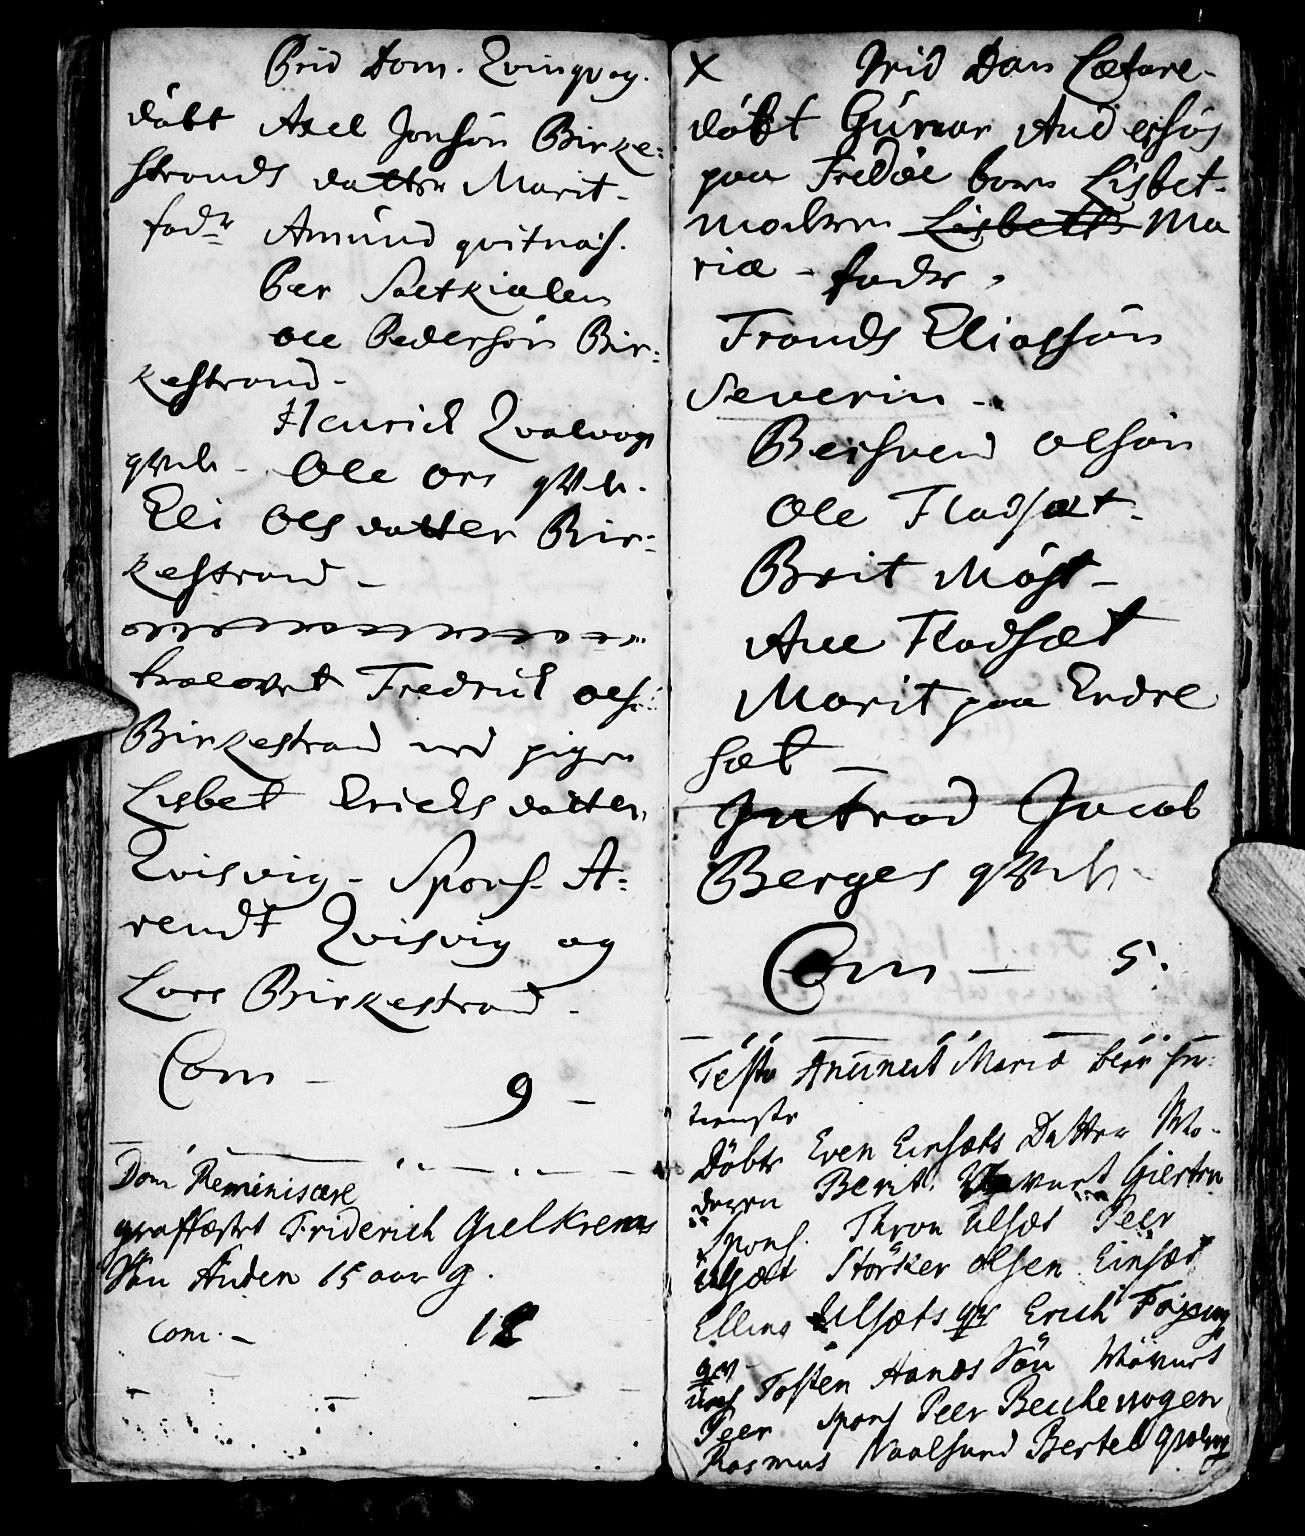 Prid Dom. Qvinqvag.
döbt Axel Jonsön Birke=
strands datter Marit-
fadr Amund qvitnæs.
Per Sætkialen
ole Pedersön Bir=
kestrand-
Henrick Qvalvogs
qvin- Ole ors qvin.
Eli Olsdatter Bir=
kestrand-
troelovet Fredrick ols:
Birkestrand med pigen
Lisbet Ericksdatter
Qvisvig- Spons. A=
rendt Qvisvig og
Lars Birkestrand.
Com - 9 -
Dom Reminiscere
graffæstet Friderich Gielkrems
Sön Anden 15 aar g.
com. - 12
x Prid Dom Lætare-
döbt Gunnar Andersös
paa Fredöe barn Lisbet-
moderen Lisbeth Ma
riæ - fadr,
Tronds Eliassön
Severin -
Bersvend Olsön
Ole Fladsæt-
Brit Möst-
Ane Fladsæt
Marit paa Endre
sæt -
Introd Jacob
Berges qvin-
Com - 5.
Festo Anunciat Mariæ
Döbt Even Einsæts Datter Mo-
deren Berit
Spons. Thron Ulsæt Peer
Ulsæt Störker Olsen Einsæt
Elling Ulsæts qv Erich
qv Tosten Hands Sön
Peer spons Peer
Rasmus Naalsund Bertel